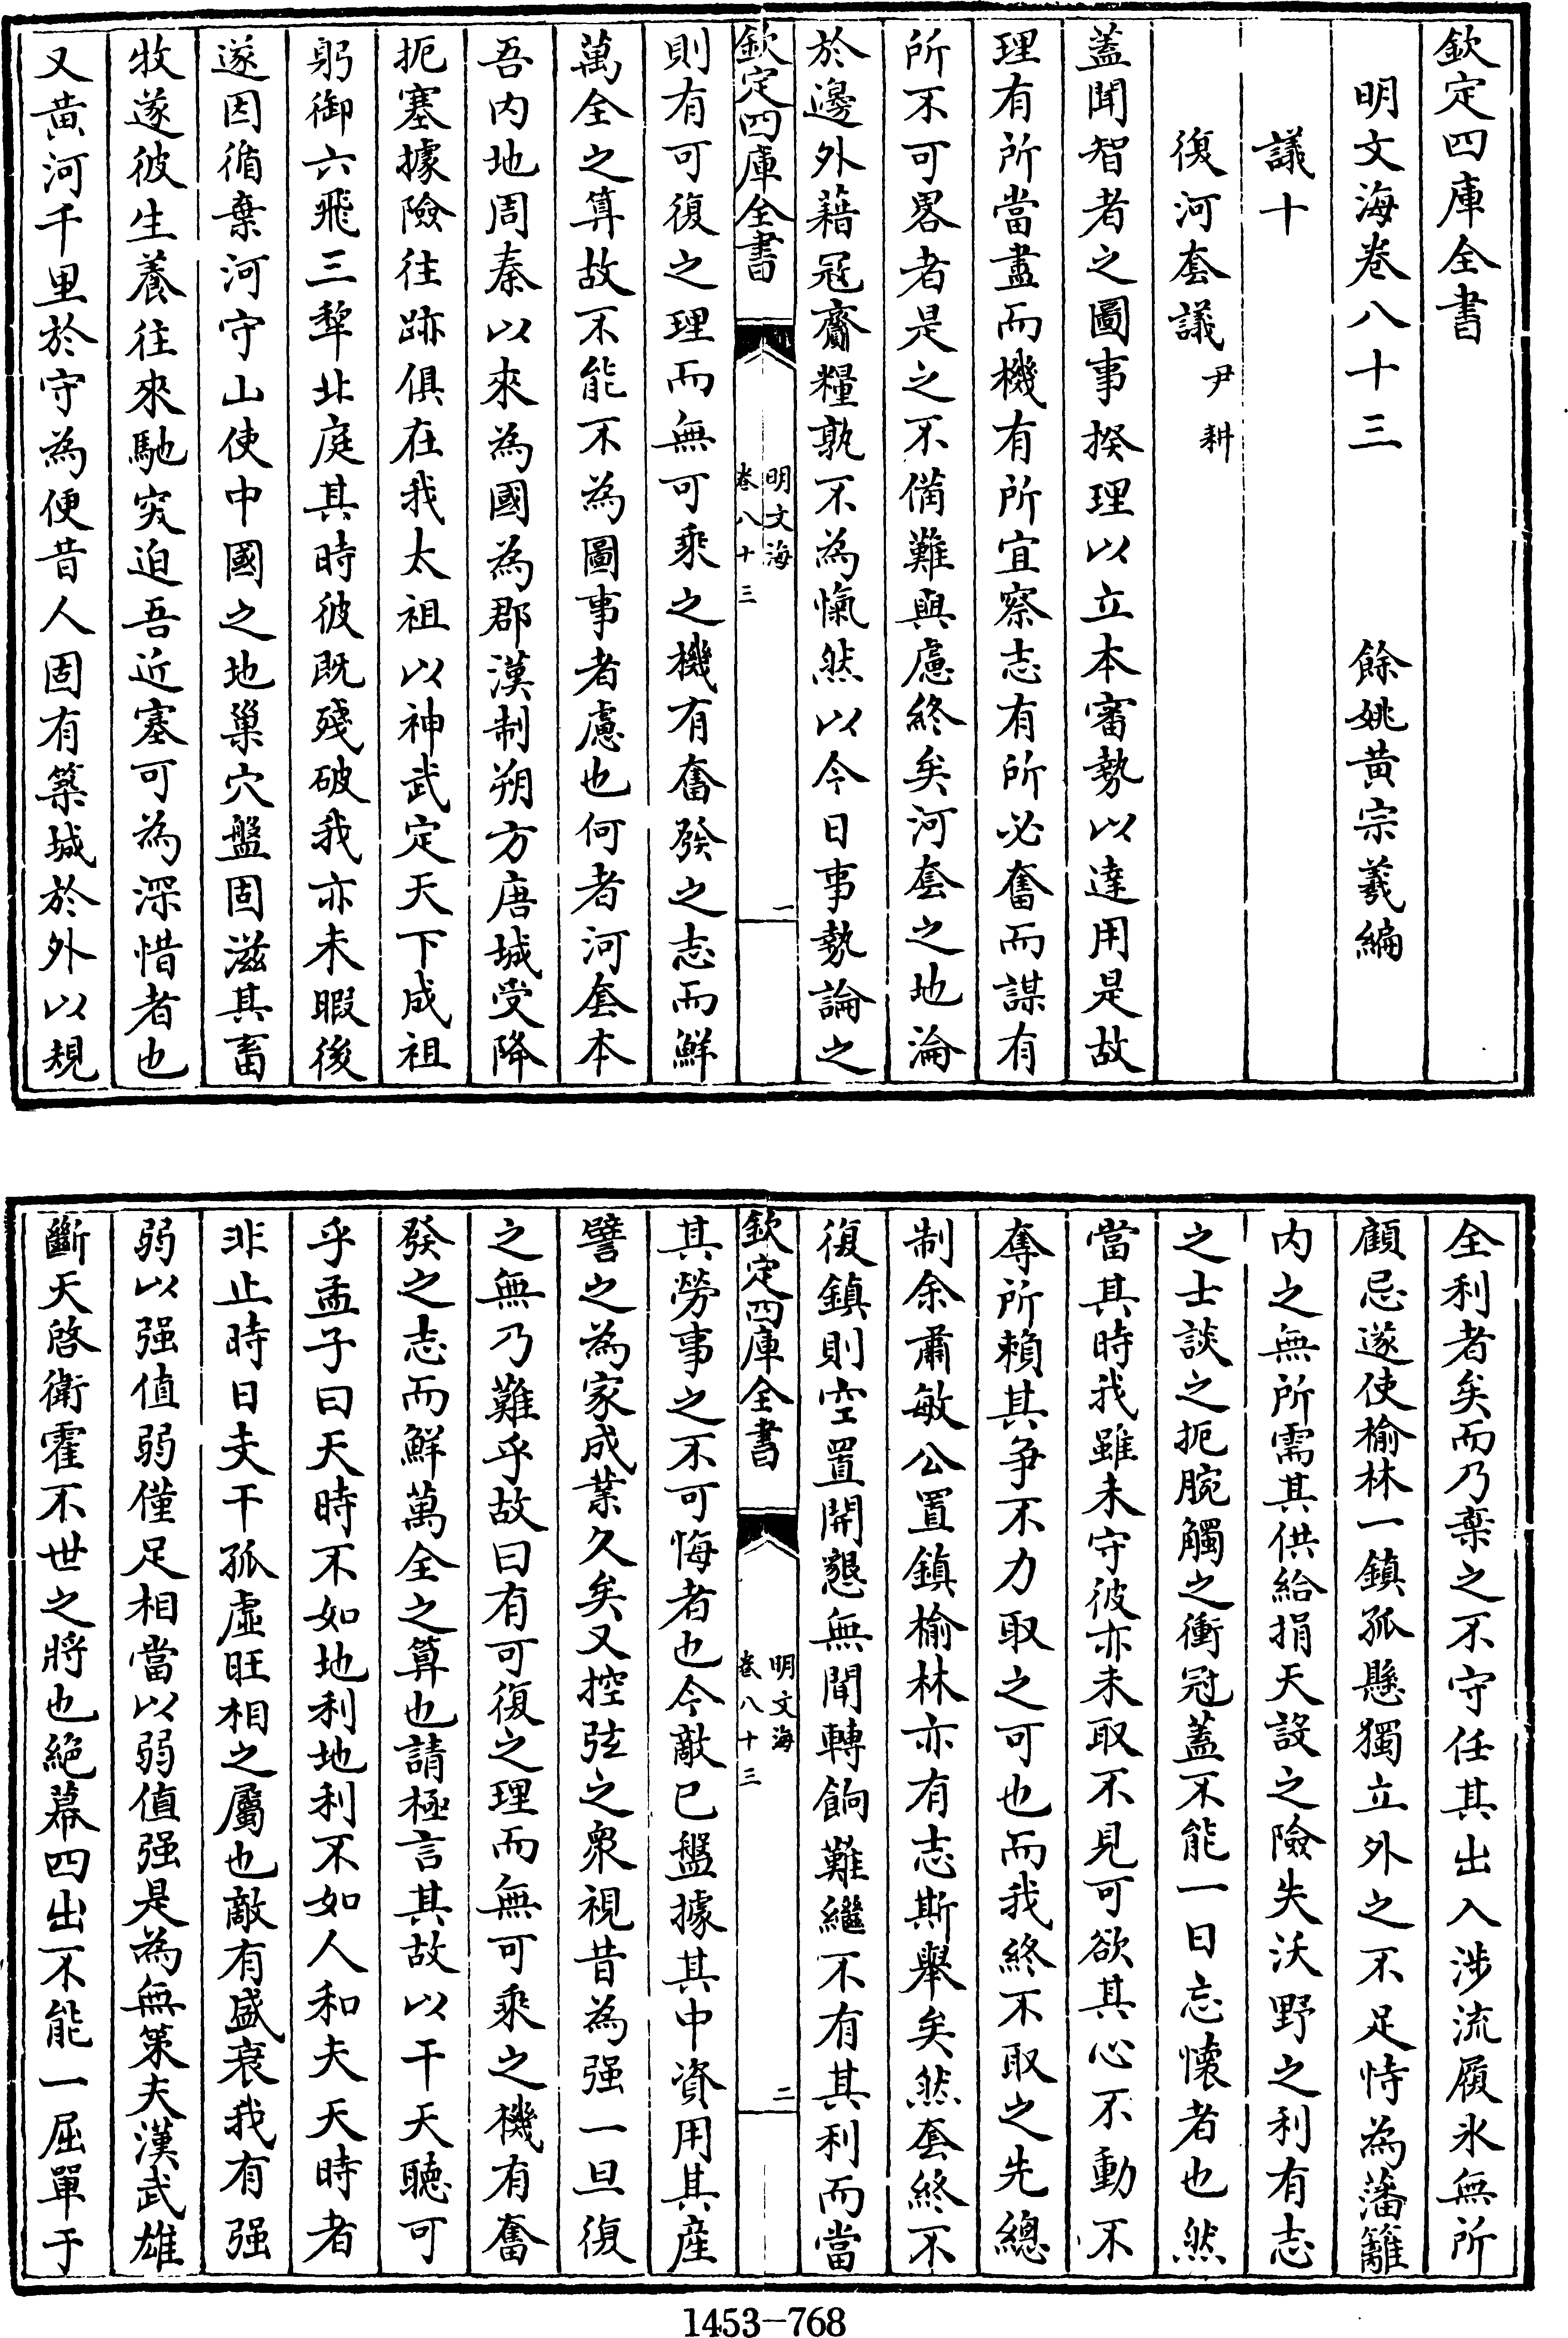 欽定四庫全書
明文海卷八十三　餘姚黃宗羲編
議十
復河套議尹耕
蓋聞智者之圖事揆理以立本審勢以達用是故
理有所當盡而機有所宜察志有所必奮而謀有
所不可畧者是之不備難與慮終矣河套之地淪
於邊外藉冦齎糧孰不為愾然以今日事勢論之
欽定四庫全書
明文海
卷八十三
一
則有可復之理而無可乘之機有奮發之志而鮮
萬全之算故不能不為圖事者慮也何者河套本
吾內地周秦以來為國為郡漢制朔方唐城受降
扼塞據險往跡俱在我太祖以神武定天下成祖
躬御六飛三犂北庭其時彼既殘破我亦未暇後
遂因循棄河守山使中國之地巢穴盤固滋其畜
牧遂彼生養往來馳突迫吾近塞可為深惜者也
又黃河千里於守為便昔人固有築城於外以規
全利者矣而乃棄之不守任其出入涉流履氷無所
顧忌遂使榆林一鎮孤懸獨立外之不足恃為藩籬
內之無所需其供給捐天設之險失沃野之利有志
之士談之扼腕觸之衝冠蓋不能一日忘懷者也然
當其時我雖未守彼亦未取不見可欲其心不動不
奪所賴其爭不力取之可也而我終不取之先總
制余肅敏公置鎮榆林亦有志斯舉矣然套終不
復鎮則空置開懇無聞轉餉難繼不有其利而當
欽定四庫全書
明文海
卷八十三
二
其勞事之不可悔者也今敵已盤據其中資用其産
譬之為家成業久矣又控弦之衆視昔為强一旦復
之無乃難乎故曰有可復之理而無可乘之機有奮
發之志而鮮萬全之算也請極言其故以干天聽可
乎孟子曰天時不如地利地利不如人和夫天時者
非止時日支干孤虛旺相之屬也敵有盛衰我有强
弱以强值弱僅足相當以弱值强是為無策夫漢武雄
斷天啓衛霍不世之將也絕幕四出不能一屈單于
1453-768